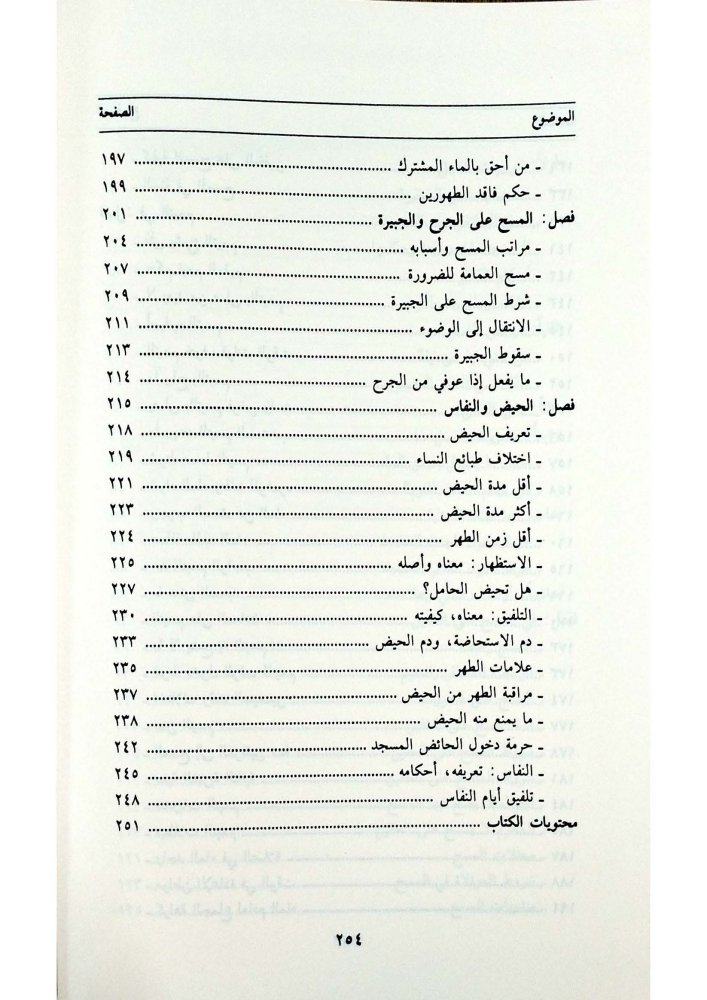 الموضوع الصفحة
ـ من أحق بالماء المشترك ................................ ١٩٧
ـ حكم فاقد الطهورين ................................ ١٩٩
فصل: المسح على الجرح والجبيرة ................................ ٢٠١
ـ مراتب المسح وأسبابه ................................ ٢٠٤
ـ مسح العمامة للضرورة ................................ ٢٠٧
ـ شرط المسح على الجبيرة ................................ ٢٠٩
ـ الانتقال إلى الوضوء ................................ ٢١١
ـ سقوط الجبيرة ................................ ٢١٣
ـ ما يفعل إذا عوفي من الجرح ................................ ٢١٤
فصل: الحيض والنفاس ................................ ٢١٥
ـ تعريف الحيض ................................ ٢١٨
ـ اختلاف طبائع النساء ................................ ٢١٩
ـ أقل مدة الحيض ................................ ٢٢١
ـ أكثر مدة الحيض ................................ ٢٢٣
ـ أقل زمن الطهر ................................ ٢٢٤
ـ الاستظهار: معناه وأصله ................................ ٢٢٥
ـ هل تحيض الحامل؟ ................................ ٢٢٧
ـ التلفيق: معناه، كيفيته ................................ ٢٣٠
ـ دم الاستحاضة، ودم الحيض ................................ ٢٣٣
ـ علامات الطهر ................................ ٢٣٥
ـ مراقبة الطهر من الحيض ................................ ٢٣٧
ـ ما يمنع منه الحيض ................................ ٢٣٨
ـ حرمة دخول الحائض المسجد ................................ ٢٤٢
ـ النفاس: تعريفه، أحكامه ................................ ٢٤٥
ـ تلفيق أيام النفاس ................................ ٢٤٨
محتويات الكتاب ................................ ٢٥١
٢٥٤